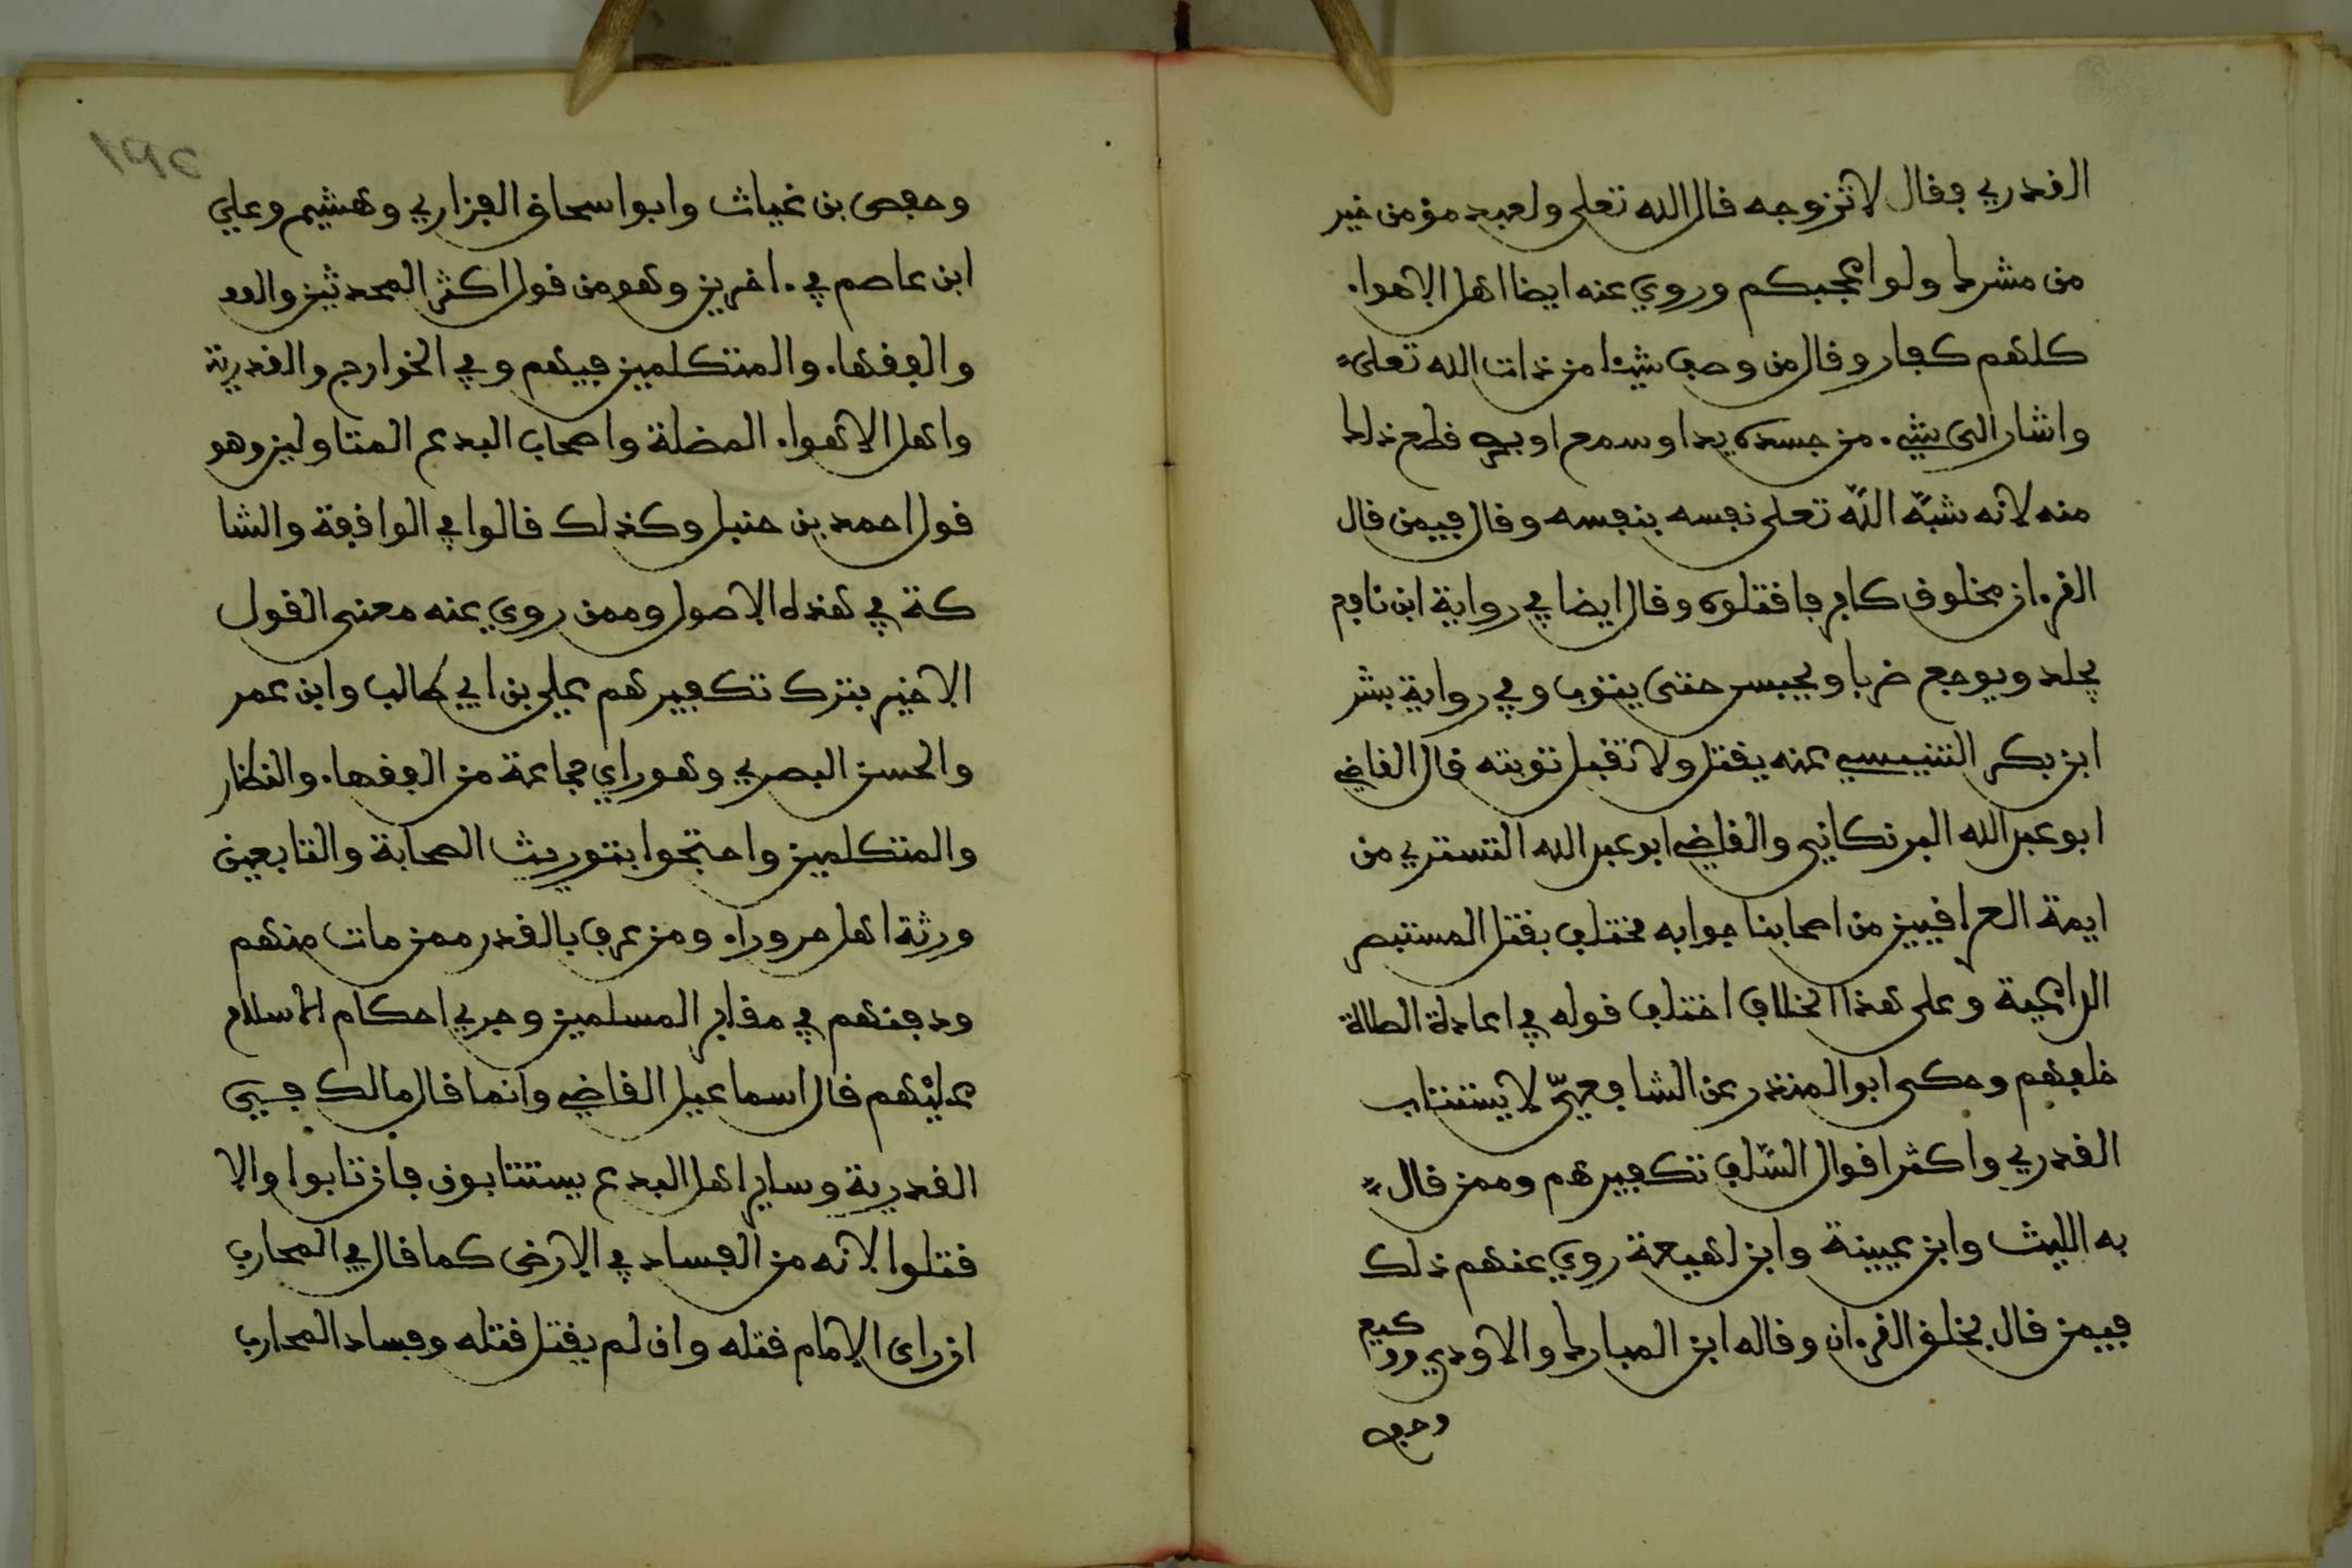 القدري فقال لا تزوجه قال الله تعلى ولعبد مؤمن خير
من مشرك ولو اعجبكم وروي عنه ايضا اهل الاهواء
كلهم كفار وقال من وصف شيئا من ذات الله تعلى
واشار الى شيء من جسده يد او سمع او بصر قطع ذلك
منه لانه شبّه اللّه تعلى نفسه بنفسه وقال فيمن قال
القرءان مخلوق كافر فاقتلوه وقال ايضا في رواية ابن نافع
يجلد ويوجع ضربا ويحبس حتى يتوب وفي رواية بشر
ابن بكر التنيسي عنه يقتل ولا تقبل توبته قال القاضي
ابو عبد الله البرنكاني والقاضي ابو عبد الله التستري من
ايمة العراقيين من اصحابنا جوابه مختلف بقتل المستبصر
الداعية وعلى هذا الخلاف اختلف قوله في اعادة الصلاة
خلفهم وحكى ابو المنذر عن الشافعيّ لا يستتاب
القدري واكثر اقوال السّلف تكفيرهم وممن قال
به الليث وابن عيينة وابن لهيعة روي عنهم ذلك
فيمن قال بخلق القرءان وقاله ابن المبارك والاودي ووكيع
وحفص
وحفص بن غياث وابو اسحاق الفزاري وهشيم وعلي
ابن عاصم في ءاخرين وهو من قول اكثر المحدثين والفقهاء
والمتكلمين فيهم وفي الخوارج والقدرية
واهل الاهواء المضلة واصحاب البدع المتاولين وهو
قول احمد بن حنبل وكذلك قالوا في الواقفة والشا
كة في هذه الاصول وممن روي عنه معنى القول
الاخير بترك تكفيرهم علي بن ابي طالب وابن عمر
والحسن البصري وهو راي جماعة من الفقهاء والنظار
والمتكلمين واحتجوا بتوريث الصحابة والتابعين
ورثة اهل حروراء ومن عرف بالقدر ممن مات منهم
ودفنهم في مقابر المسلمين وجري احكام الاسلام
عليهم قال اسماعيل القاضي وانما قال مالك في
القدرية وساير اهل البدع يستتابون فان تابوا والا
قتلوا لانه من الفساد في الارض كما قال في المحارب
ان راى الامام قتله وان لم يقتل قتله وفساد المحارب